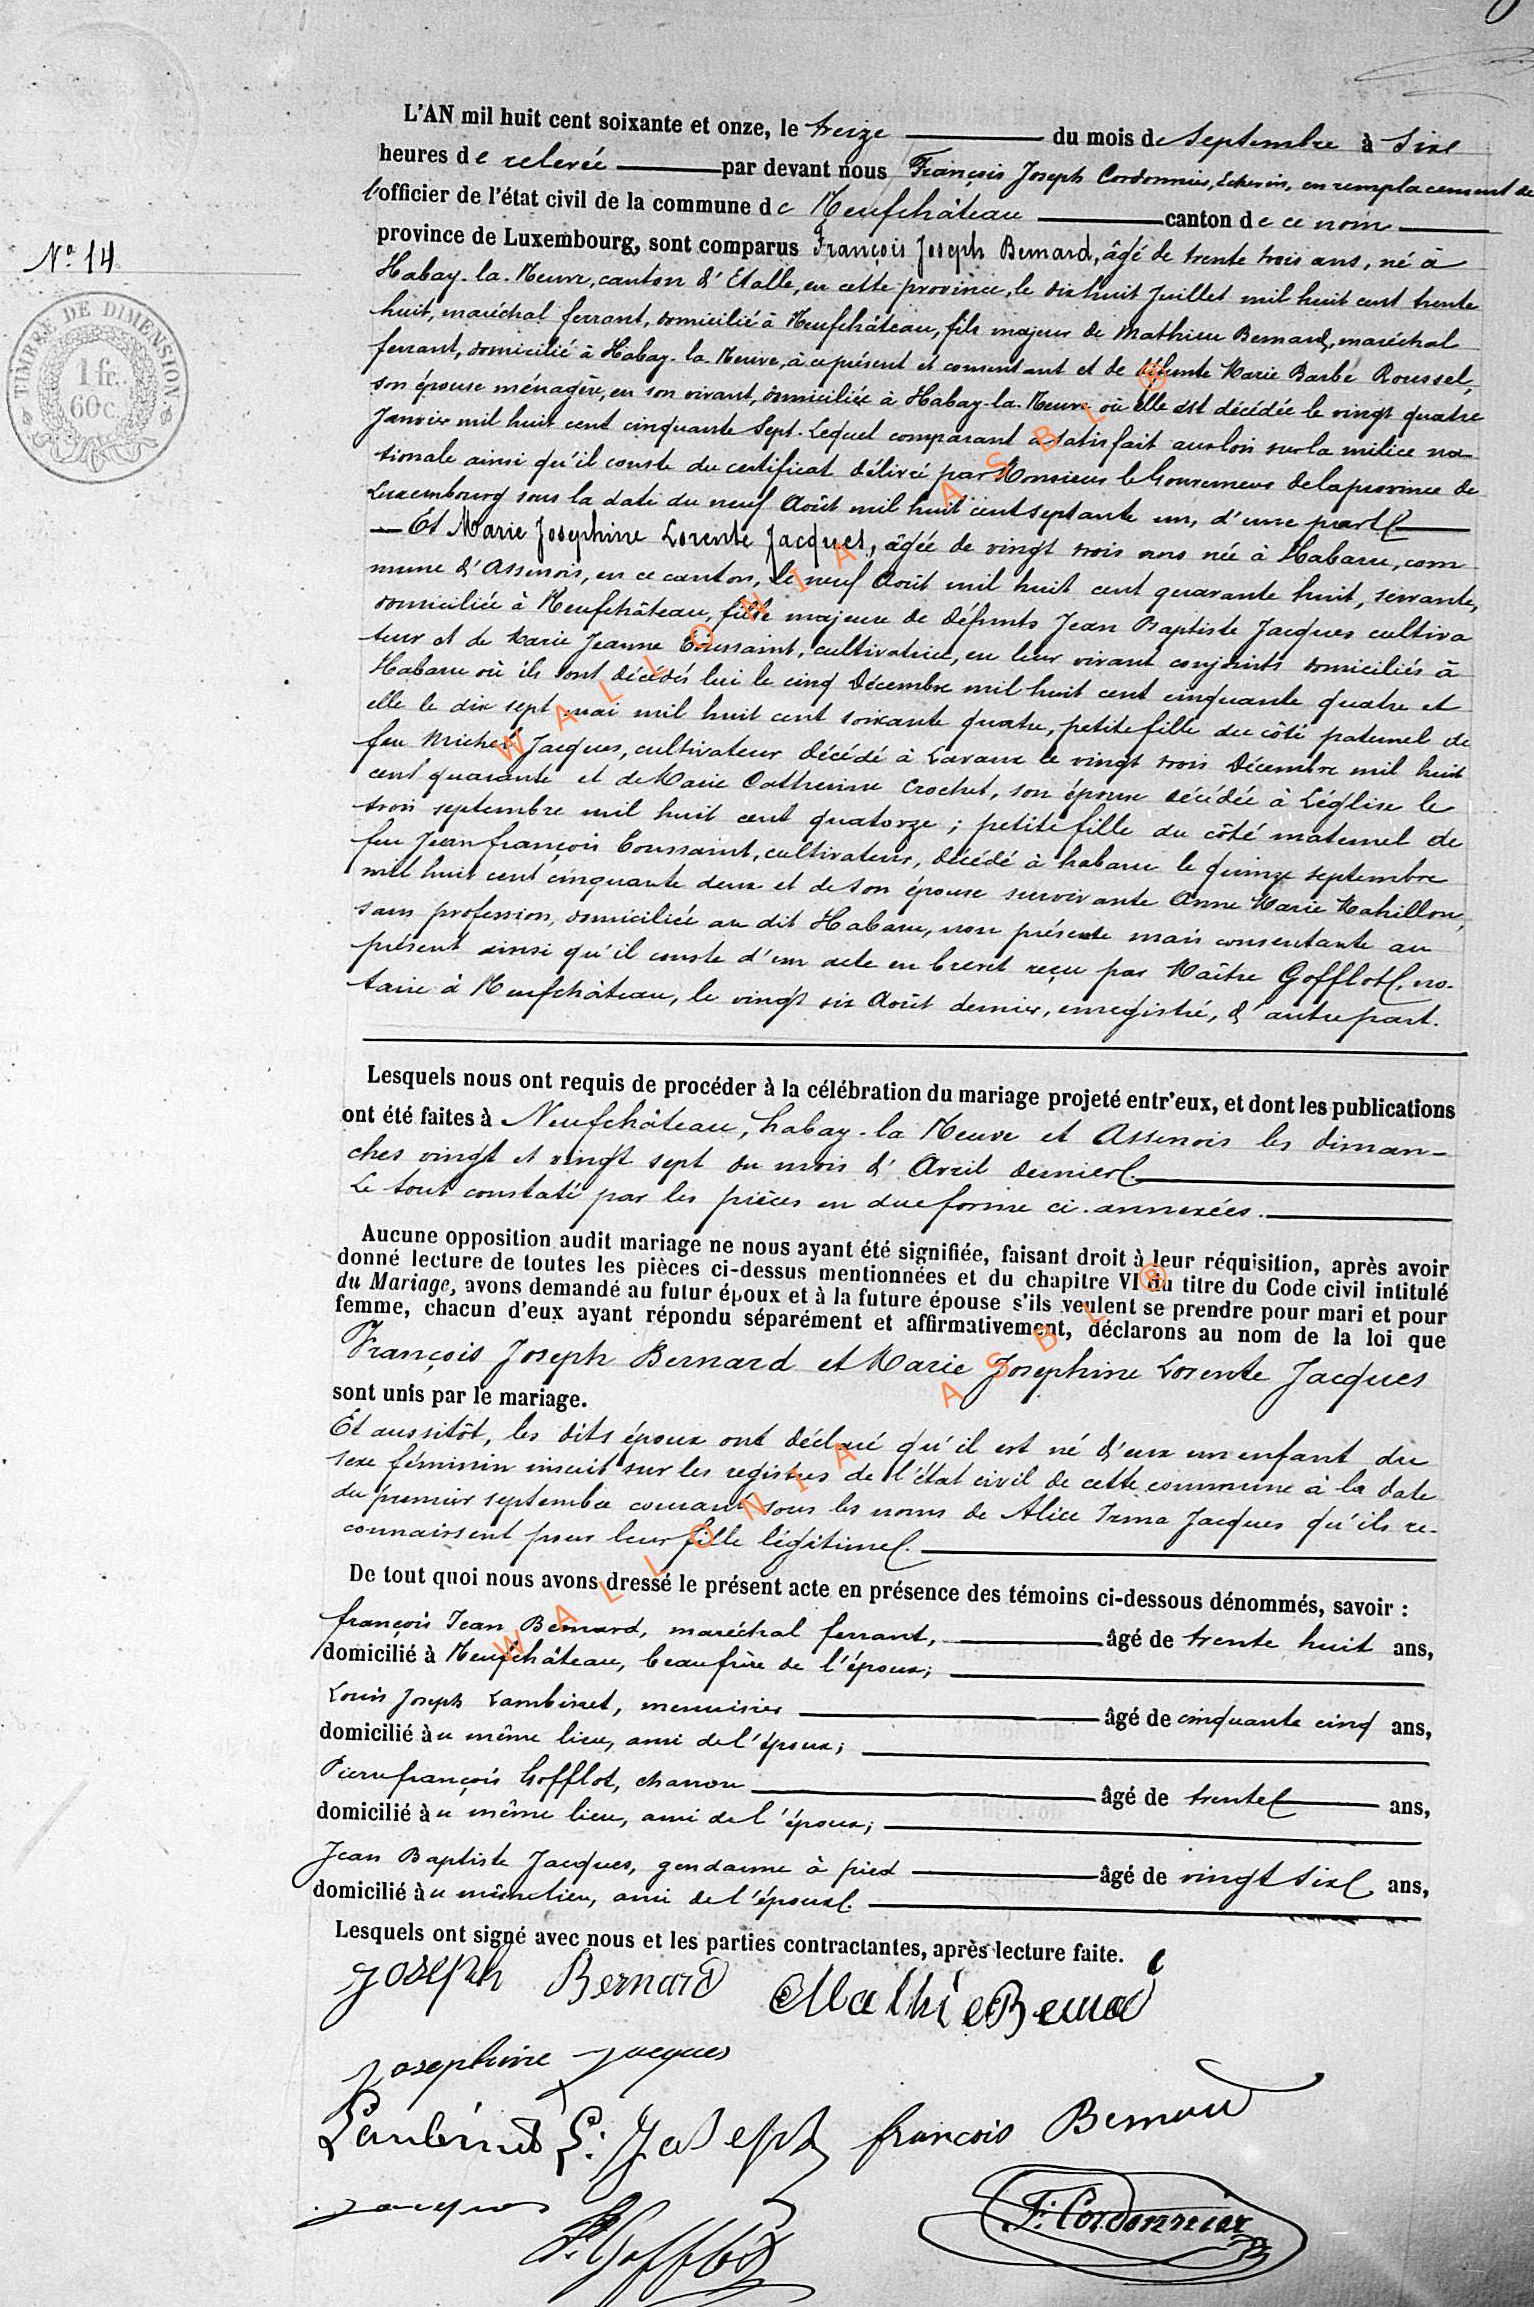 L'AN mil huit cent soixante et onze, le treize du mois de Septembre à six
heures de relevée par devant nous François Joseph Cordonnier, Echevin, en remplacement de
l'officier de l'état civil de la commune de Neufchâteau canton de ce nom
N° 14
province de Luxembourg, sont comparus François Joseph Bernard, âgé de trente trois ans, né à
Habay-la-Neuve, canton d'Etalle, en cette province, le dix huit Juillet mil huit cent trente
huit, maréchal ferrant, domicilié à Neufchâteau, fils majeur de Mathieu Bernard, maréchal
ferrant, domicilié à Habay-la-Neuve, à ce présent et consentant et de défunte Marie Barbe Roussel,
son épouse ménagère, en son vivant, domiciliée à Habay-la-Neuve où elle est décédée le vingt quatre
Janvier mil huit cent cinquante sept. Lequel comparant a satisfait aux lois sur la milice na-
tionale ainsi qu'il conste du certificat délivré par Monsieur le Gouverneur de la province de
Luxembourg sous la date du neuf Août mil huit cent septante un, d'une part
Et Marie Josephine Lorente Jacques, âgée de vingt trois ans née à Habaru, com
mune d'Assenois, en ce canton, le neuf Août mil huit cent quarante huit, servante,
domiciliée à Neufchâteau, fille majeure de défunts Jean Baptiste Jacques cultiva
teur et de Marie Jeanne Toussaint, cultivatrice, en leur vivant conjoints domiciliés à
Habaru où ils sont décédés lui le cinq Décembre mil huit cent cinquante quatre et
elle le dix sept mai mil huit cent soixante quatre, petite fille du côté paternel de
feu Michel Jacques, cultivateur décédé à Lavaux le vingt trois Décembre mil huit
cent quarante et de Marie Catherine Crochet, son épouse décédée à Léglise le
trois septembre mil huit cent quatorze ; petite fille du côté maternel de
feu Jean françois Toussaint, cultivateur, décédé à habaru le quinze septembre
mil huit cent cinquante deux et de son épouse survivante Anne Marie Mahillon,
sans profession, domiciliée au dit Habaru, non présente mais consentante au
présent ainsi qu'il conste d'un acte en brevet reçu par Maître Gofflot, no-
taire à Neufchâteau, le vingt six Août dernier, enregistré, d'autre part.
TIMBRE DE DIMENSION
1 fr.
60 c.
Lesquels nous ont requis de procéder à la célébration du mariage projeté entr'eux, et dont les publications
ont été faites à Neufchâteau, habay-la Neuve et Assenois les diman-
ches vingt et vingt sept du mois d'Avril dernier
Le tout constaté par les pièces en due forme ci-annexées.
Aucune opposition audit mariage ne nous ayant été signifiée, faisant droit à leur réquisition, après avoir
donné lecture de toutes les pièces ci-dessus mentionnées et du chapitre VI du titre du Code civil intitulé
du Mariage, avons demandé au futur époux et à la future épouse s'ils veulent se prendre pour mari et pour
femme, chacun d'eux ayant répondu séparément et affirmativement, déclarons au nom de la loi que
François Joseph Bernard et Marie Josephine Lorente Jacques
sont unis par le mariage.
Et aussitôt, les dits époux ont déclaré qu'il est né d'eux un enfant du
sexe féminin inscrit sur les registres de l'état civil de cette commune à la date
du premier septembre courant sous les noms de Alice Irma Jacques qu'ils re-
connaissent pour leur fille légitime.
De tout quoi nous avons dressé le présent acte en présence des témoins ci-dessous dénommés, savoir :
françois Jean Bernard, maréchal ferrant, âgé de trente huit ans,
domicilié à Neufchâteau, beau frère de l'époux;
Louis Joseph Lambinet, menuisier âgé de cinquante cinq ans,
domicilié au même lieu, ami de l'époux;
Pierre françois Gofflot, charron âgé de trente ans,
domicilié au même lieu, ami de l'époux;
Jean Baptiste Jacques, gendarme à pied âgé de vingt six ans,
domicilié au même lieu, ami de l'époux.
Lesquels ont signé avec nous et les parties contractantes, après lecture faite.
Joseph Bernard Mathie Bernard
Josephine Jacques
Lambinet L: Joseph francois Bernard
Jacques P. Gofflot F: Cordonnier
WALLONIA ASBL ®
WALLONIA ASBL ®